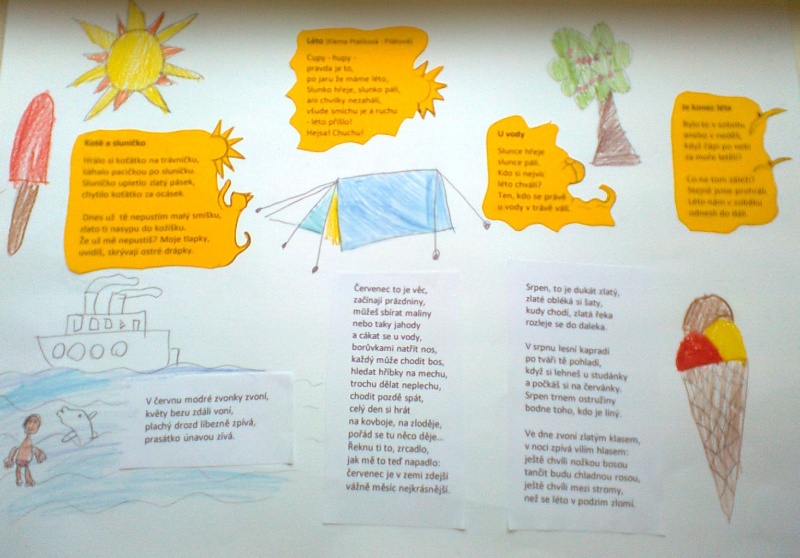 Léto (Alena Prallová - Plánová)
Cupy - hupy -
pravda je to,
po jaru že máme léto,
Slunko hřeje, slunko pálí,
ani chvilky nezahálí,
všude smíchu je a ruchu
- léto přišlo!
Hejsa! Chuchu!
Kotě a sluníčko
Hrálo si koťátko na trávníčku,
sahalo pacičkou po sluníčku.
Sluníčko upletlo zlatý pásek,
chytilo koťátko za ocásek.
Dnes už tě nepustím malý smíšku,
zlato ti nasypu do kožíšku.
Že už mě nepustíš? Moje tlapky,
uvidíš, skrývají ostré drápky.
U vody
Slunce hřeje
slunce pálí.
Kdo si nejvíc
léto chválí?
Ten, kdo se právě
u vody v trávě válí.
Je konec léta
Bylo to v sobotu
anebo v neděli,
když čápi po nebi
za moře letěli?
Co na tom záleží?
Stejně jsme prohráli.
Léto nám v zobáku
odnesli do dáli.
V červnu modré zvonky zvoní,
květy bezu zdáli voní,
plachý drozd libezně zpívá,
prasátko únavou zívá.
Červenec to je věc,
začínají prázdniny,
můžeš sbírat maliny
nebo taky jahody
a cákat se u vody,
borůvkami natřít nos,
každý může chodit bos,
hledat hříbky na mechu,
trochu dělat neplechu,
chodit pozdě spát,
celý den si hrát
na kovboje, na zloděje,
pořád se tu něco děje...
Řeknu ti to, zrcadlo,
jak mě to teď napadlo:
červenec je v zemi zdejší
vážně měsíc nejkrásnější.
Srpen, to je dukát zlatý,
zlaté obléká si šaty,
kudy chodí, zlatá řeka
rozleje se do daleka.
V srpnu lesní kapradí
po tváři tě pohladí,
když si lehneš u studánky
a počkáš si na červánky.
Srpen trnem ostružiny
bodne toho, kdo je líný.
Ve dne zvoní zlatým klasem,
v noci zpívá vílím hlasem:
ještě chvíli nožkou bosou
tančit budu chladnou rosou,
ještě chvíli mezi stromy,
než se léto v podzim zlomí.